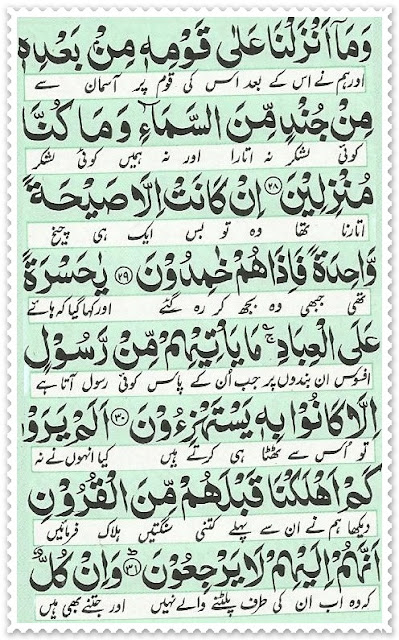 وَمَاۤ اَنْزَلْنَا عَلٰى قَوْمِهٖ مِنْۢ بَعْدِهٖ
اور ہم نے اس کے بعد اس کی قوم پر آسمان سے
مِنْ جُنْدٍ مِّنَ السَّمَآءِ وَمَا كُنَّا
کوئی لشکر نہ اتارا اور نہ ہمیں کوئی لشکر
مُنْزِلِيْنَ ﴿۲۸﴾ اِنْ كَانَتْ اِلَّا صَيْحَةً
اتارنا تھا وہ تو بس ایک ہی چیخ
وَّاحِدَةً فَاِذَاهُمْ خٰمِدُوْنَ ﴿۲۹﴾ يٰحَسْرَةً
تھی جبھی وہ بجھ کر رہ گئے اور کہا گیا کہ ہائے
عَلَى الْعِبَادِ ۚ مَا يَاْتِيْهِمْ مِّنْ رَّسُوْلٍ
افسوس ان بندوں پر جب اُن کے پاس کوئی رسول آتا ہے
اِلَّا كَانُوْا بِهٖ يَسْتَهْزِءُوْنَ ﴿۳۰﴾ اَلَمْ يَرَوْا
تو اُس سے ٹھٹا ہی کرتے ہیں کیا انہوں نے نہ
كَمْ اَهْلَكْنَا قَبْلَهُمْ مِّنَ الْقُرُوْنِ
دیکھا ہم نے ان سے پہلے کتنی سنگتیں ہلاک فرمائیں
اَنَّهُمْ اِلَيْهِمْ لَا يَرْجِعُوْنَ ﴿۳۱﴾ وَاِنْ كُلٌّ
کہ وہ اب ان کی طرف پلٹنے والے نہیں اور جتنے بھی ہیں